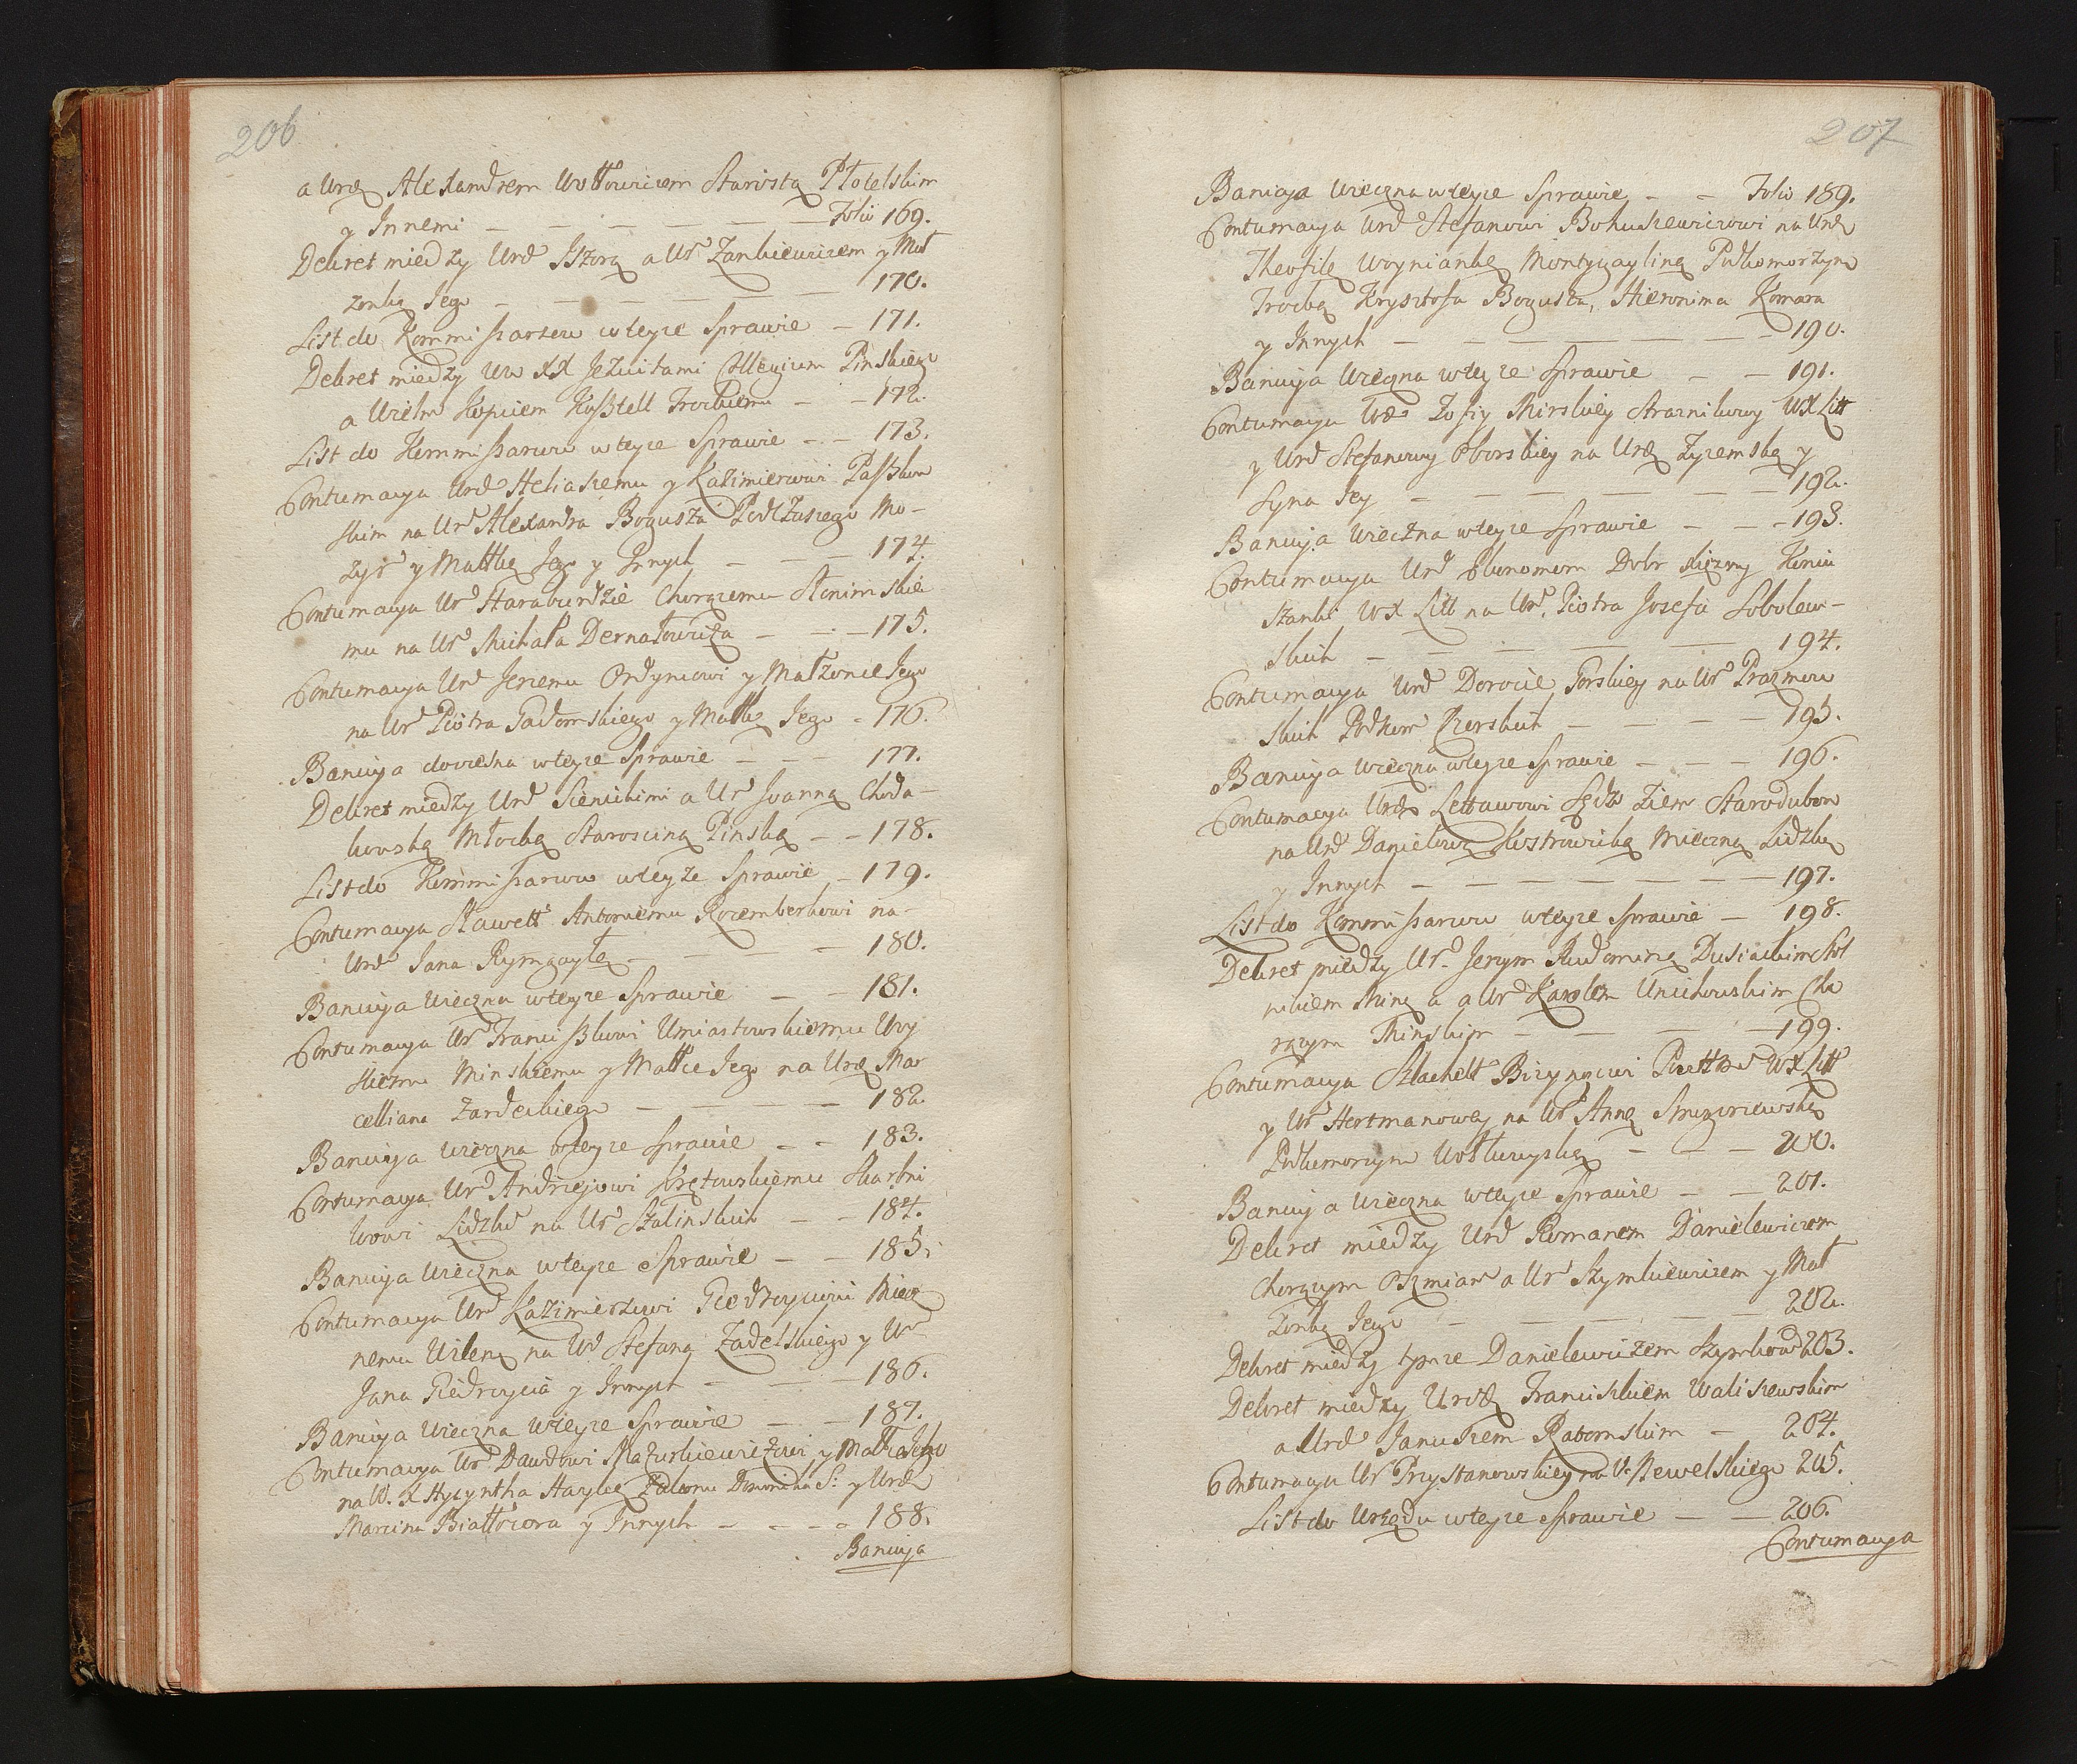 206
a Urod Alexandrem Wołłowiczem Starostą Płotelskim
y Innemi — Folio 169.
Dekret między Urod Iszorą a Ur Zankiewiczem y Mał
żonką Jego — 170.
List do Kommissarzow wteyze Sprawie — 171.
Dekret między Ww XX Jezuitami Collegium Pinskiego
a Wielm Kopciem Kasztell Trockiemu — 172.
List do Kommissarzow wteyze Sprawie — 173.
Contumacya Urod Heliaszemu y Kazimierowi Paszkow
skim na Ur Alexandra Bogusza Podczaszego Mo-
zyr y Małkę Jego y Innych — 174.
Contumacya Ur Haraburdzie Chorązemu Słonimskie
mu na Ur Michała Dernałowicza — 175.
Contumacya Urod Jerzemu Ordyncowi y Małżonce Jego
na Ur Piotra Gadomskiego y Małkę Jego - 176.
Banicya doczesna wteyze Sprawie — 177.
Dekret między Urod Sienickimi a Ur Joanną Choda-
kowską Młocką Starosciną Pinską — 178.
List do Kommissarzow wteyze Sprawie - 179.
Contumacya Sławett Antoniemu Rozemberkowi na-
Urod Jana Rymgaylę — 180.
Banicya wieczna wteyze Sprawie — 181.
Contumacya Ur Franciszkowi Umiastowskiemu Woy
skiemu Minskiemu y Małce Jego na Urod Mar
celliana Zardeckiego — 182.
Banicya wieczna wteyze Sprawie — 183.
Contumacya Ur Andrzejowi Skarbni
kowi Lidzkd na Ur Stalinskich — 184.
Banicya wieczna wteyze Sprawie — 185.
Contumacya Ur Kazimierzowi Giedroyciowi Miecz
nemu Wilen na Ur Stefana Zadelskiego y Ur
Jana Giedroycia y Innych — 186.
Banicya wieczna wteyze Sprawie — 187.
Contumacya Ur Dawidowi Mazurkiewiczowi y Małce Jego
na W. X Hyacyntha Hayke Zakonu Dominika S: y Urod
Marcina Białłozora y Innych — 188.
Banicya
207
Banicya wieczna wteyze Sprawie — Folio 189.
Contumacya Urod Stefanowi Bohuszewiczowi na Urod
Theofilę Woyniankę Montygaylinę Podkomorzynę
Trocką Krysztofa Bogusza, Hieronima Komara
y Innych — 190.
Banicya wieczna wteyze Sprawie — 191.
Contumacya Urod Zofiy Mirskiey Straznikowy WX Litt
y Urod Stefanowy Oborskiey na Urod Zyzemską y
Syna Jey — 192.
Banicya wieczna wteyze Sprawie — 193.
Contumacya Urod Ekonomom Dobr Koniu
WX Litt na Ur. Piotra Josefa Sobolew-
skich — 194.
Contumacya Urod Dorocie Gorskiey na Ur Prazmow
skich Podkom Czerskich — 195.
Banicya wieczna wteyze Sprawie — 196.
Contumacya Urod Lettawowi Sędz Ziem Starodubow
na Urod Danielową Kostrowicką Mieczną Lidzką
y Innych — 197.
List do Kommissarzow wteyze Sprawie — 198.
Dekret między Ur. Jerzym Rudominą Dusiackim Stol
nikiem a Ur Karolem Unichowskim Cho
rązym Minskim — 199.
Contumacya Szlachett WX Litt
y Ur Hertmanowey na Ur Annę
Podkomorzynę Wołkowyską — 200.
Banicya wieczna wteyze Sprawie — 201.
Dekret między Urod Romanem Danielewiczem
Chorązym Oszmian a Ur Szymkiewiczem y Mał
żonką Jego — 202.
Dekret między tymze Danielewiczem Szymkow 203.
Dekret między Urod Franciszkiem Waliszewskim
a Urod Januszem Radomskim — 204.
Contumacya Ur Przystanowskiey na U. Newelskiego 205.
List do Urzędu wteyze Sprawie — 206.
Contumacya